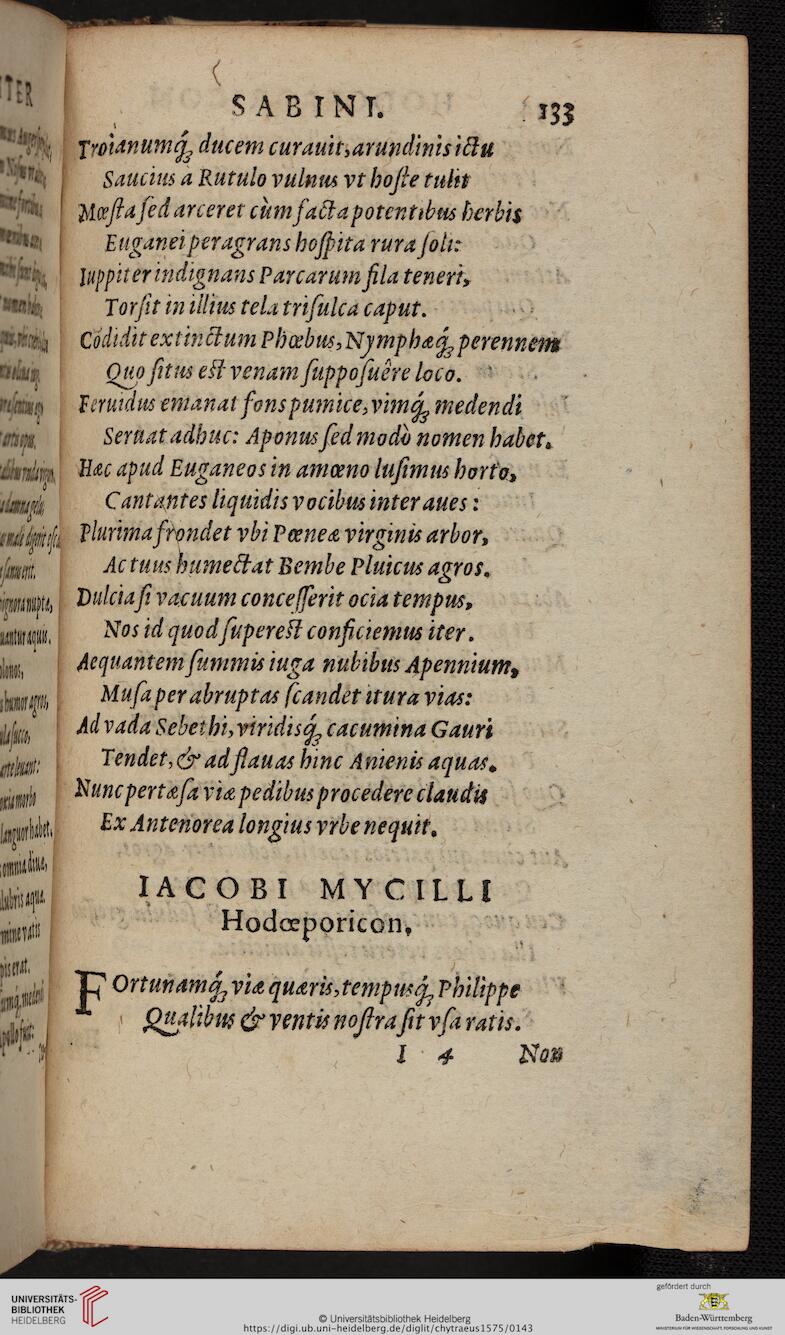 SABINI. 133
Troianumq́ꝫ ducem curauit, arundinis ictu
Saucius a Rutulo vulnus vt hoſte tulit
Mœſta ſed arceret cùm facta potentibus herbis
Euganei peragrans hoſpita rura ſoli:
Iuppiter indignans Parcarum fila teneri,
Torſit in illius tela triſulca caput.
Cōdidit extinctum Phœbus, Nymphæq́ꝫ perennem
Quo ſitus eſt venam ſuppoſuêre loco.
Feruidus emanat fons pumice, vimq́ꝫ medendi
Seruat adhuc: Aponus ſed modò nomen habet.
Hæc apud Euganeos in amœno luſimus horto,
Cantantes liquidis vocibus inter aues:
Plurima frondet vbi Pœneæ virginis arbor,
Ac tuus humectat Bembe Pluicus agros.
Dulcia ſi vacuum conceſſerit ocia tempus,
Nos id quod ſupereſt conficiemus iter.
Aequantem ſummis iuga nubibus Apennium,
Muſa per abruptas ſcandet itura vias:
Ad vada Sebethi, viridisq́ꝫ cacumina Gauri
Tendet, & ad flauas hinc Anienis aquas.
Nunc pertæſa viæ pedibus procedere claudis
Ex Antenorea longius vrbe nequit.
IACOBI MYCILLI
Hodœporicon,
FOrtunamq́ꝫ viæ quæris, tempusq́ꝫ Philippe
Qualibus & ventis noſtra ſit vſa ratis.
I 4 Non
UNIVERSITÄTS-
BIBLIOTHEK
HEIDELBERG
© Universitätsbibliothek Heidelberg
https://digi.ub.uni-heidelberg.de/diglit/chytraeus1575/0143
gefördert durch
Baden-Württemberg
MINISTERIUM FÜR WISSENSCHAFT, FORSCHUNG UND KUNST